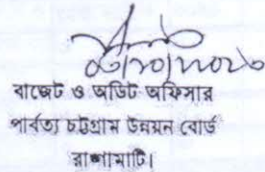 বাজেট ও অডিট অফিসার
পার্বত্য চট্টগ্রাম উন্নয়ন বোর্ড
রাঙ্গামাটি।